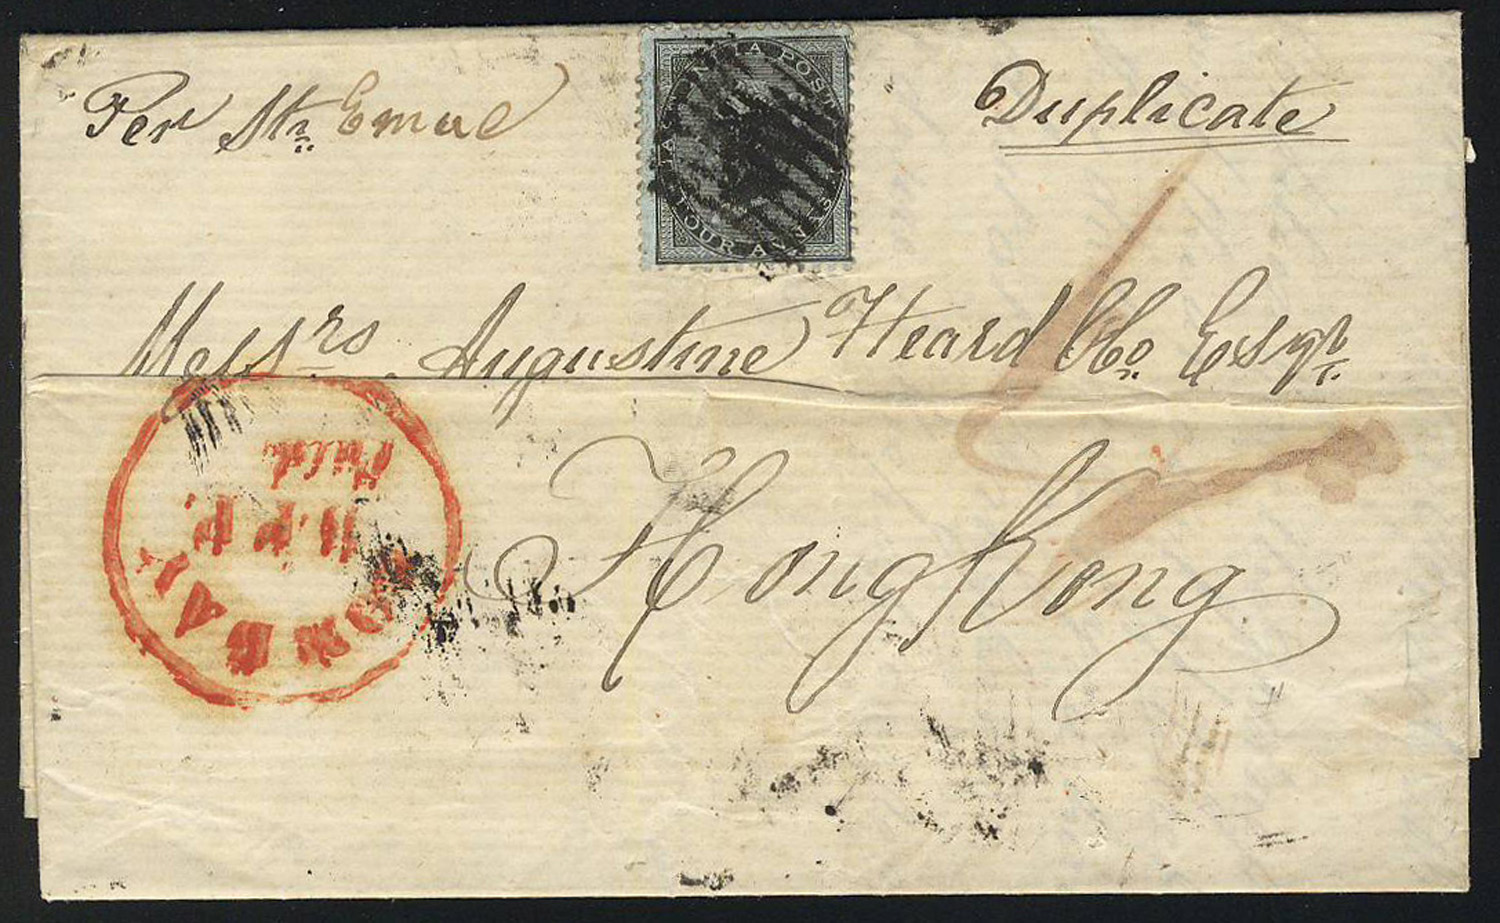 Per Str. Emue
Duplicate
INDIA POSTAGE
FOUR ANNAS
Messrs. Augustine Heard & Co. Esqr.
HongKong
BOMBAY
P.P.
Paid.